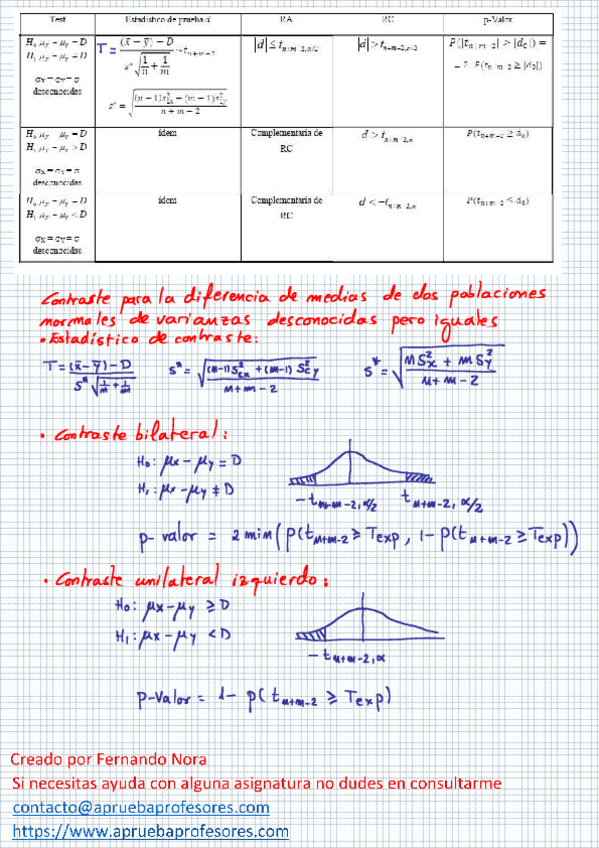 Test Estadístico de prueba d RA RC p-Valor
H₀ μX − μY = D
H₁ μX − μY ≠ D
σX = σY = σ
desconocidas
T = (x̄ − ȳ) − D / s* √(1/n + 1/m) ~ tn+m−2
s* = √((n−1)s²cX + (m−1)s²cY / n+m−2)
|d| ≤ tn+m−2,α/2
|d| > tn+m−2,α/2
P(|tn+m−2| > |d₀|) =
= 2·P(tn+m−2 ≥ |d₀|)
H₀ μX − μY = D
H₁ μX − μY > D
σX = σY = σ
desconocidas
ídem
Complementaria de
RC
d > tn+m−2,α
P(tn+m−2 ≥ d₀)
H₀ μX − μY = D
H₁ μX − μY < D
σX = σY = σ
desconocidas
ídem
Complementaria de
RC
d < −tn+m−2,α
P(tn+m−2 ≤ d₀)
Contraste para la diferencia de medias de dos poblaciones
normales de varianzas desconocidas pero iguales
• Estadístico de contraste:
T = (x̄ − ȳ) − D / S* √(1/n + 1/m) S* = √((n−1)S²cx + (m−1)S²cy / n+m−2) S* = √(nS²x + mS²y / n+m−2)
• Contraste bilateral:
H₀: μx − μy = D
H₁: μx − μy ≠ D
−tn+m−2, α/2 tn+m−2, α/2
p- valor = 2 min(p(tn+m−2 ≥ Texp, 1− p(tn+m−2 ≥ Texp))
• Contraste unilateral izquierdo:
H₀: μx − μy ≥ D
H₁: μx − μy < D
−tn+m−2, α
p-valor = 1− p(tn+m−2 ≥ Texp)
Creado por Fernando Nora
Si necesitas ayuda con alguna asignatura no dudes en consultarme
contacto@apruebaprofesores.com
https://www.apruebaprofesores.com